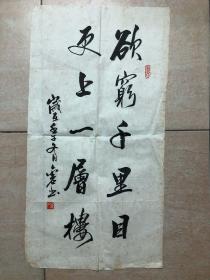 欲窮千里目
更上一層樓
歲在壬子冬月